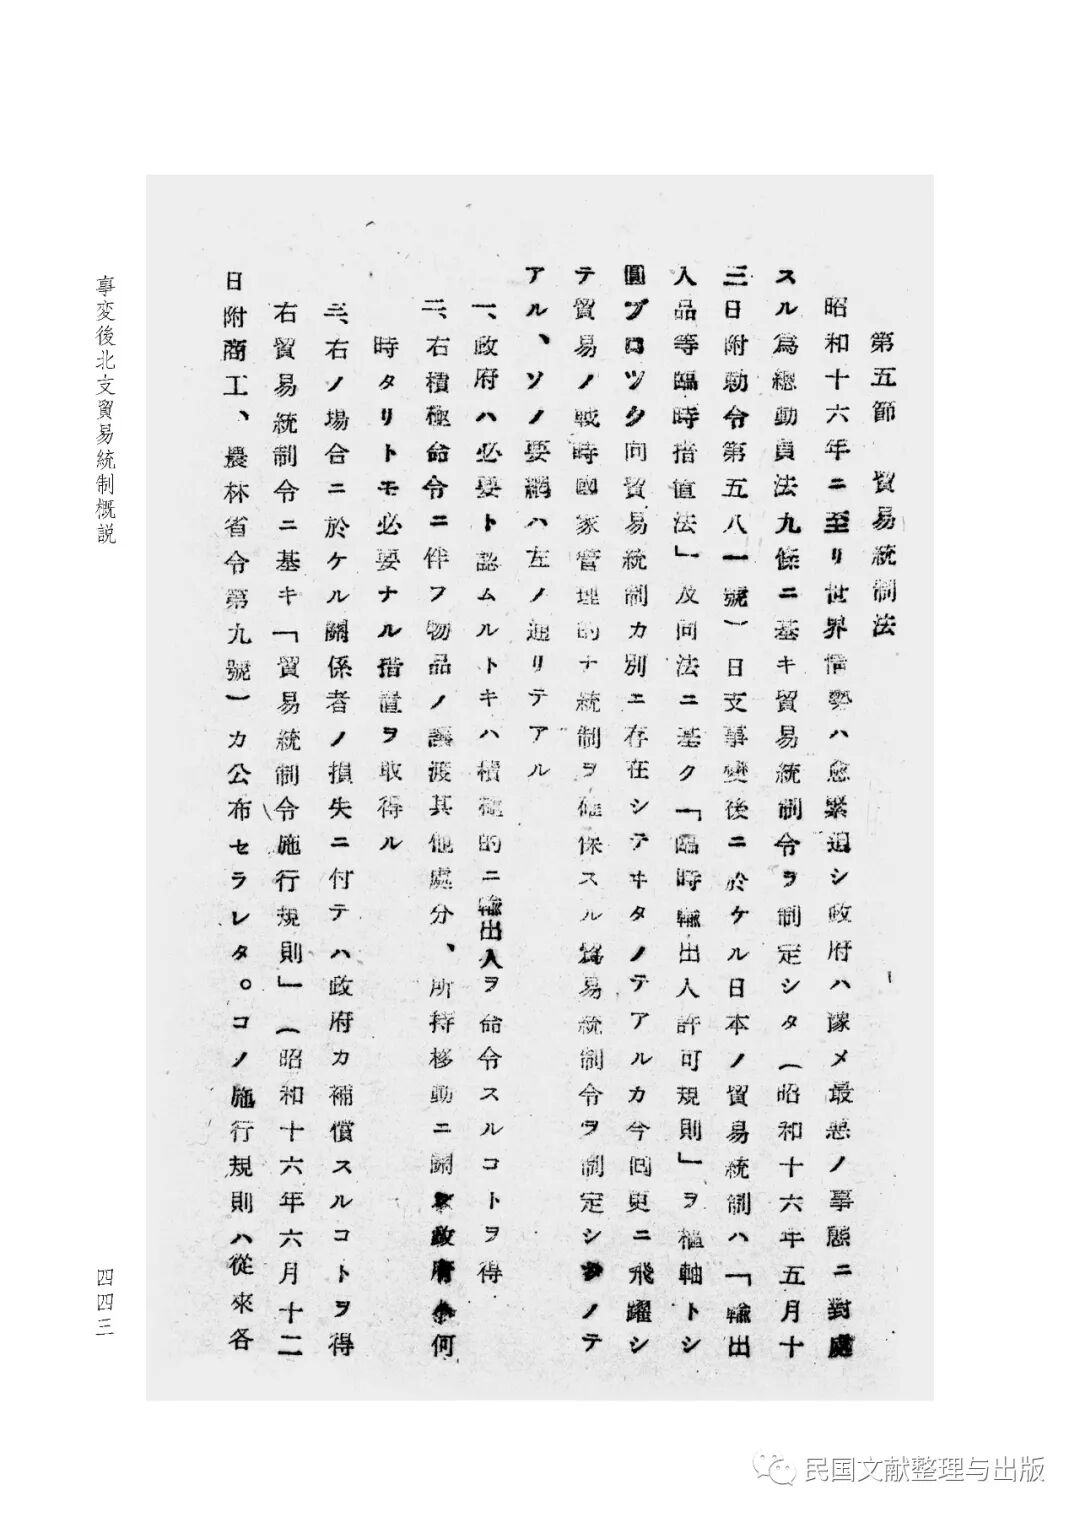 第五節　貿易統制法
昭和十六年ニ至リ世界情勢ハ愈緊迫シ政府ハ豫メ最悪ノ事態ニ對處
スル爲總動員法九條ニ基キ貿易統制令ヲ制定シタ（昭和十六年五月十
三日附勅令第五八一號）日支事變後ニ於ケル日本ノ貿易統制ハ「輸出
入品等臨時措值法」及同法ニ基ク「臨時輸出入許可規則」ヲ樞軸トシ
圓ブロツク向貿易統制カ別ニ存在シテヰタノテアルカ今回更ニ飛躍シ
テ貿易ノ戰時國家管理的ナ統制ヲ確保スル貿易統制令ヲ制定シタノテ
アル、ソノ要綱ハ左ノ通リテアル
一、政府ハ必要ト認ムルトキハ積極的ニ輸出入ヲ命令スルコトヲ得
二、右積極命令ニ伴フ物品ノ讓渡其他處分、所持移動ニ關 政府 何
時タリトモ必要ナル措置ヲ取得ル
三、右ノ場合ニ於ケル關係者ノ損失ニ付テハ政府カ補償スルコトヲ得
右貿易統制令ニ基キ「貿易統制令施行規則」（昭和十六年六月十二
日附商工、農林省令第九號）カ公布セラレタ。コノ施行規則ハ從來各
事変後北支貿易統制概説
四四三
民国文献整理与出版